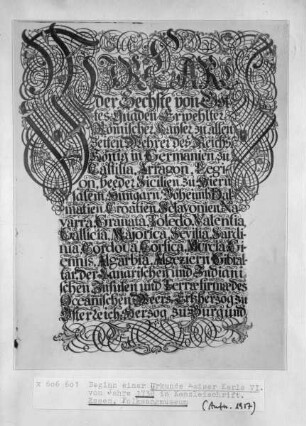 WIR CARL
der Sechste von Got-
tes Gnaden Erwehlter
Römischer Kayser zu allen
Zeiten Mehrer des Reichs
König in Germanien, zu
Castilia, Arragon, Legi-
on, beeder Sicilien, zu Hieru-
salem, Hungarn, Boheimb, Dal-
matien, Croatien, Sclavonien, Na-
varra, Granata, Toledo, Valentia,
Gallicia, Majorica, Sevilia, Sardi-
nia, Cordova, Corsica, Murcia, Gi-
ennis, Algarbia, Algeziern, Gibral-
tar, der Canarischen und Indiani-
schen Insulen und Terræ firmæ, des
Oceanischen Meers, Ertzhertzog zu
Österreich, Hertzog zu Burgund
V 606 601 Design einer Urkunde Kaiser Karls VI.
vom Jahre in Kanzleischrift.
Essen, Folkwangmuseum
(Aufn. 1957)